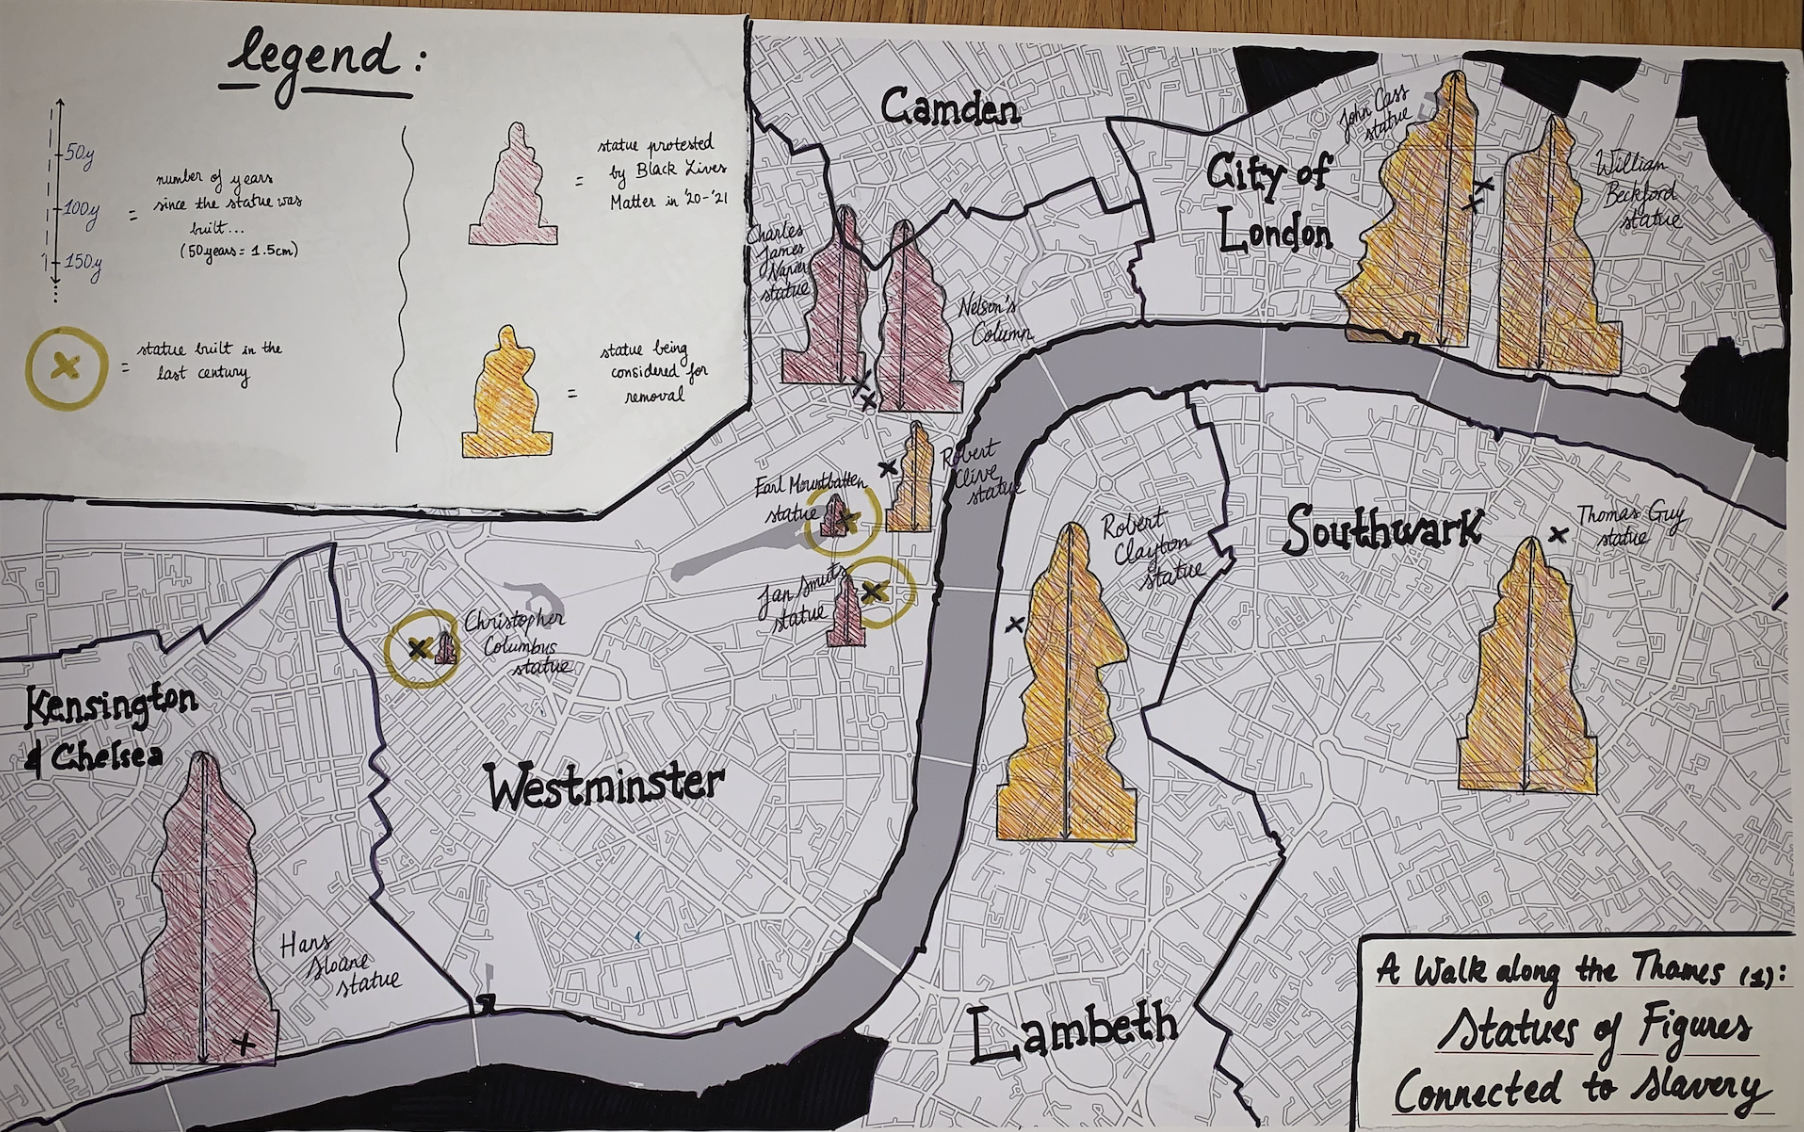 legend :
50y
100y
150y
=
number of years
since the statue was
built...
(50years = 1.5cm)
=
statue built in the
last century
=
statue protested
by Black Lives
Matter in '20-'21
=
statue being
considered for
removal
Camden
City of
London
John Cass
statue
William
Beckford
statue
Charles
James
Napier
statue
Nelson's
Column
Robert
Clive
statue
Earl Mountbatten
statue
Jan Smuts
statue
Christopher
Columbus
statue
Robert
Clayton
statue
Southwark
Thomas Guy
statue
Kensington
& Chelsea
Westminster
Hans
Sloane
statue
Lambeth
A Walk along the Thames (1):
Statues of Figures
Connected to Slavery